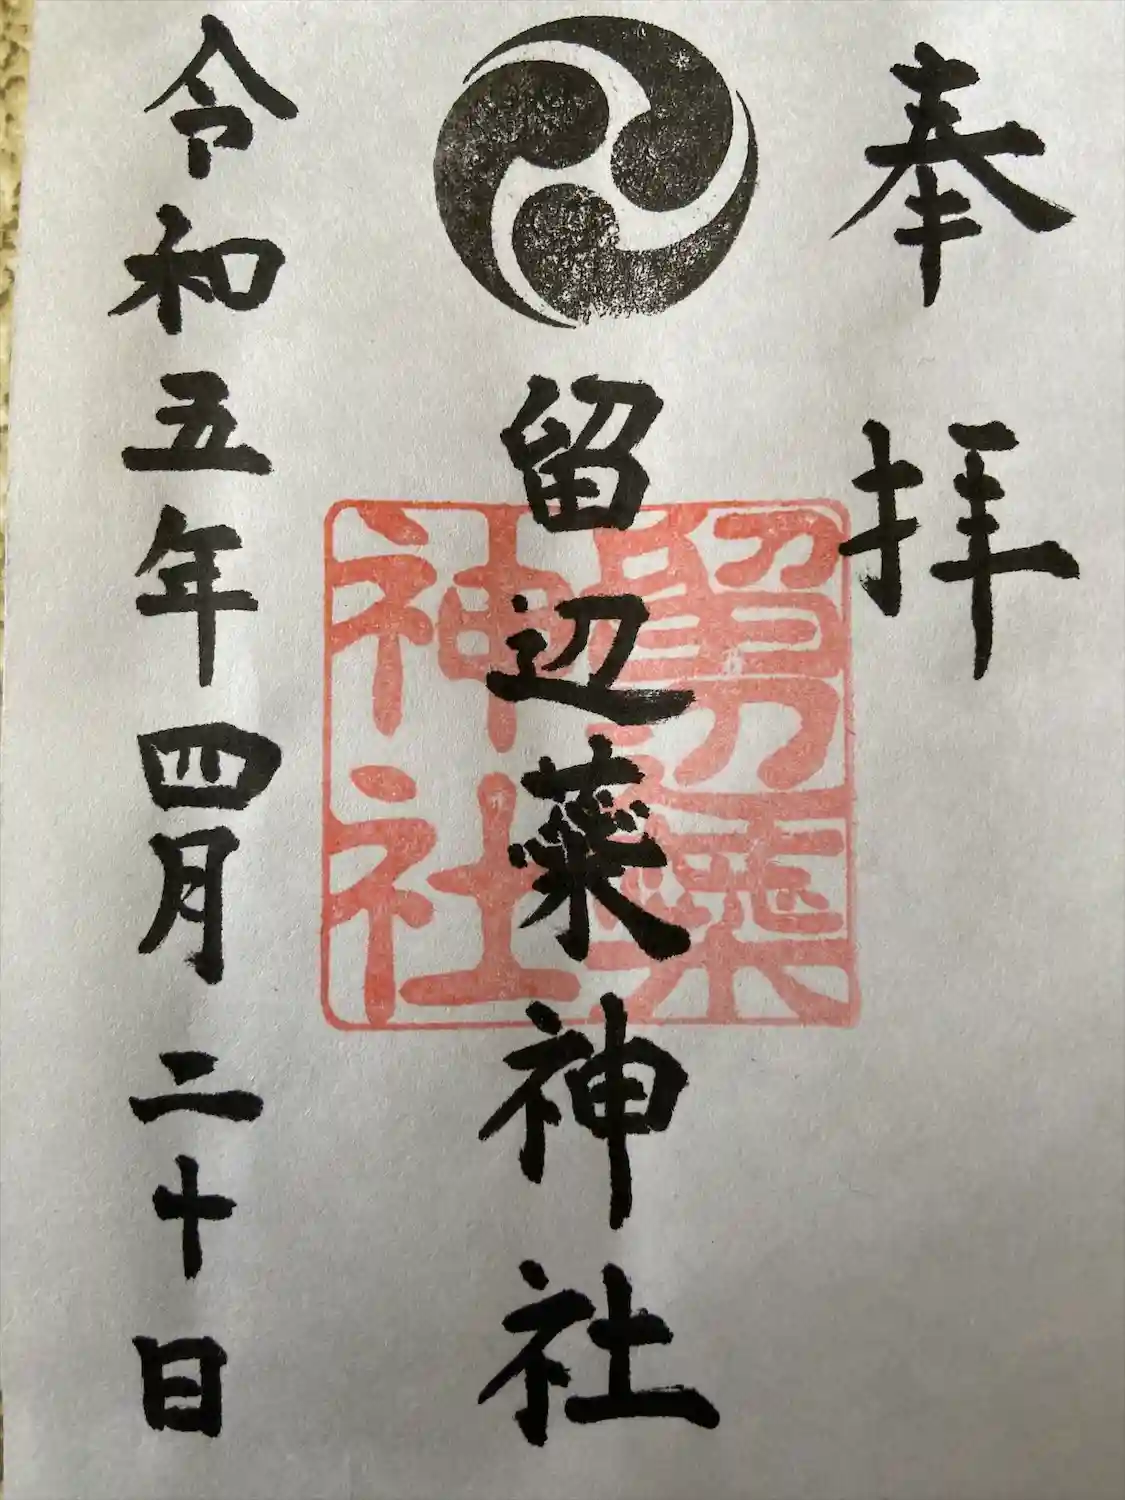 奉拝
留辺蘂神社
留辺蘂
神社
令和五年四月二十日